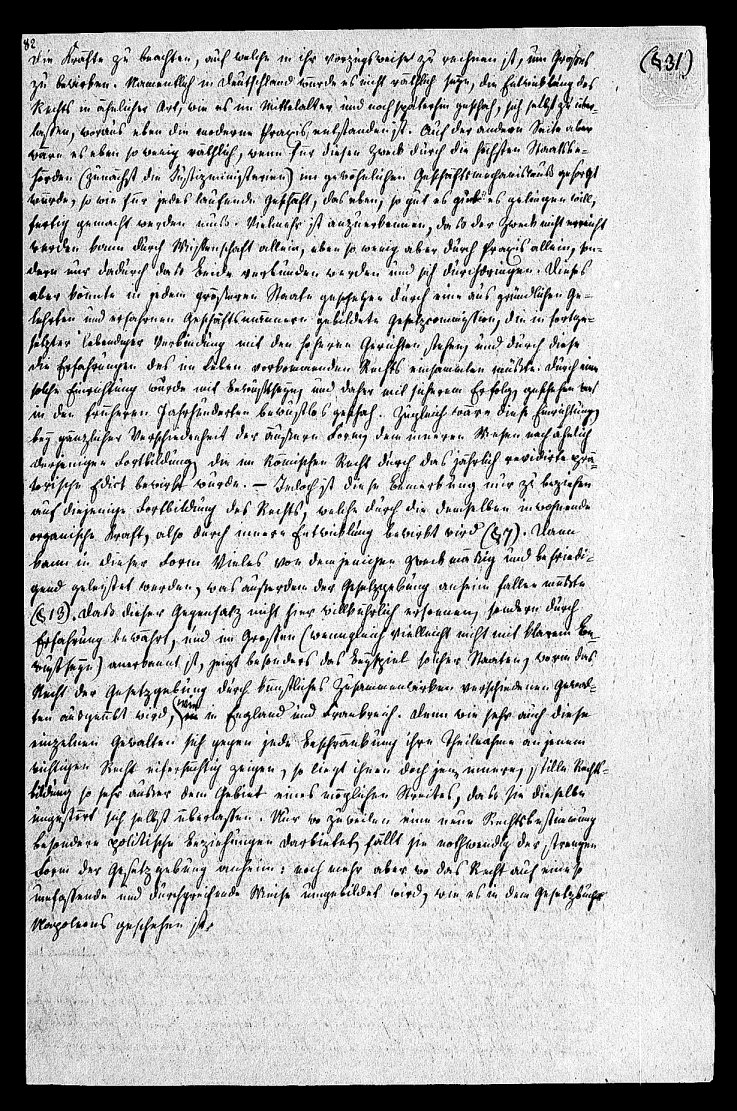 82
(§31)
die Kräfte zu beachten, auf welche in ihr vorzugsweise zu rechnen ist, um Großes
zu bewirken. Namentlich in Deutschland würde es nicht räthlich seyn, die Entwicklung des
Rechts in ähnlicher Art, wie es im Mittelalter und noch späterhin geschah, sich selbst zu über-
lassen, woraus eben die moderne Praxis entstanden ist. Auf der andern Seite aber
wäre es eben so wenig räthlich, wenn für diesen Zweck durch die höchsten Staatsbe-
hörden (zunächst die Justizministerien) im gewöhnlichen Geschäftsmechanismus gesorgt
würde, so wie für jedes laufende Geschäft, das eben, so gut es gelingen will,
fertig gemacht werden muß. Vielmehr ist anzuerkennen, daß der Zweck nicht erreicht
werden kann durch Wissenschaft allein, eben so wenig aber durch Praxis allein, son-
dern nur dadurch daß beide verbunden werden und sich durchdringen. Dieses
aber könnte in jedem größeren Staate geschehen durch eine aus gründlichen Ge-
lehrten und erfahrnen Geschäftsmännern gebildete Gesetzcommission, die in fortge-
setzter lebendiger Verbindung mit den höheren Gerichten stehen, und durch diese
die Erfahrungen des im Leben vorkommenden Rechts einsammlen müßte. Durch eine
solche Einrichtung würde mit Bewußtseyn, und daher mit sicherem Erfolg, geschehen was
in den früheren Jahrhunderten bewußtlos geschah. Zugleich wäre diese Einrichtung,
bey gänzlicher Verschiedenheit der äußern Form, dem inneren Wesen nach ähnlich
derjenigen Fortbildung die im Römischen Recht durch das jährlich revidirte prä-
torische Edict bewirkt wurde. — Jedoch ist diese Bemerkung nur zu beziehen
auf diejenige Fortbildung des Rechts, welche durch die demselben inwohnende
organische Kraft, also durch innere Entwicklung bewirkt wird (§7). Dann
kann in dieser Form Vieles von demjenigen zweckmäßig und befriedi-
gend geleistet werden, was außerdem der Gesetzgebung anheim fallen müßte
(§13). Daß dieser Gegensatz nicht hier willkührlich ersonnen, sondern durch
Erfahrung bewährt, und im Großen (wenngleich vielleicht nicht mit klarem Be-
wußtseyn) anerkannt ist, zeigt besonders das Beyspiel solcher Staaten, worin das
Recht der Gesetzgebung durch künstliches Zusammenwirken verschiedener Gewal-
ten ausgeübt wird, wie in England und Frankreich. Denn wie sehr auch diese
einzelnen Gewalten sich gegen jede Beschränkung ihrer Theilnahme an jenem
wichtigen Recht eifersüchtig zeigen, so liegt ihnen doch jene innere, stille Rechts-
bildung so sehr außer dem Gebiet eines möglichen Streites, daß sie dieselbe
ungestört sich selbst überlassen. Nur wo zuweilen eine neue Rechtsbestimmung
besondere politische Beziehungen darbietet, fällt sie nothwendig der strengen
Form der Gesetzgebung anheim: noch mehr aber wo das Recht auf eine so
umfassende und durchgreifende Weise umgebildet wird, wie es in dem Gesetzbuche
Napoleons geschehen ist.